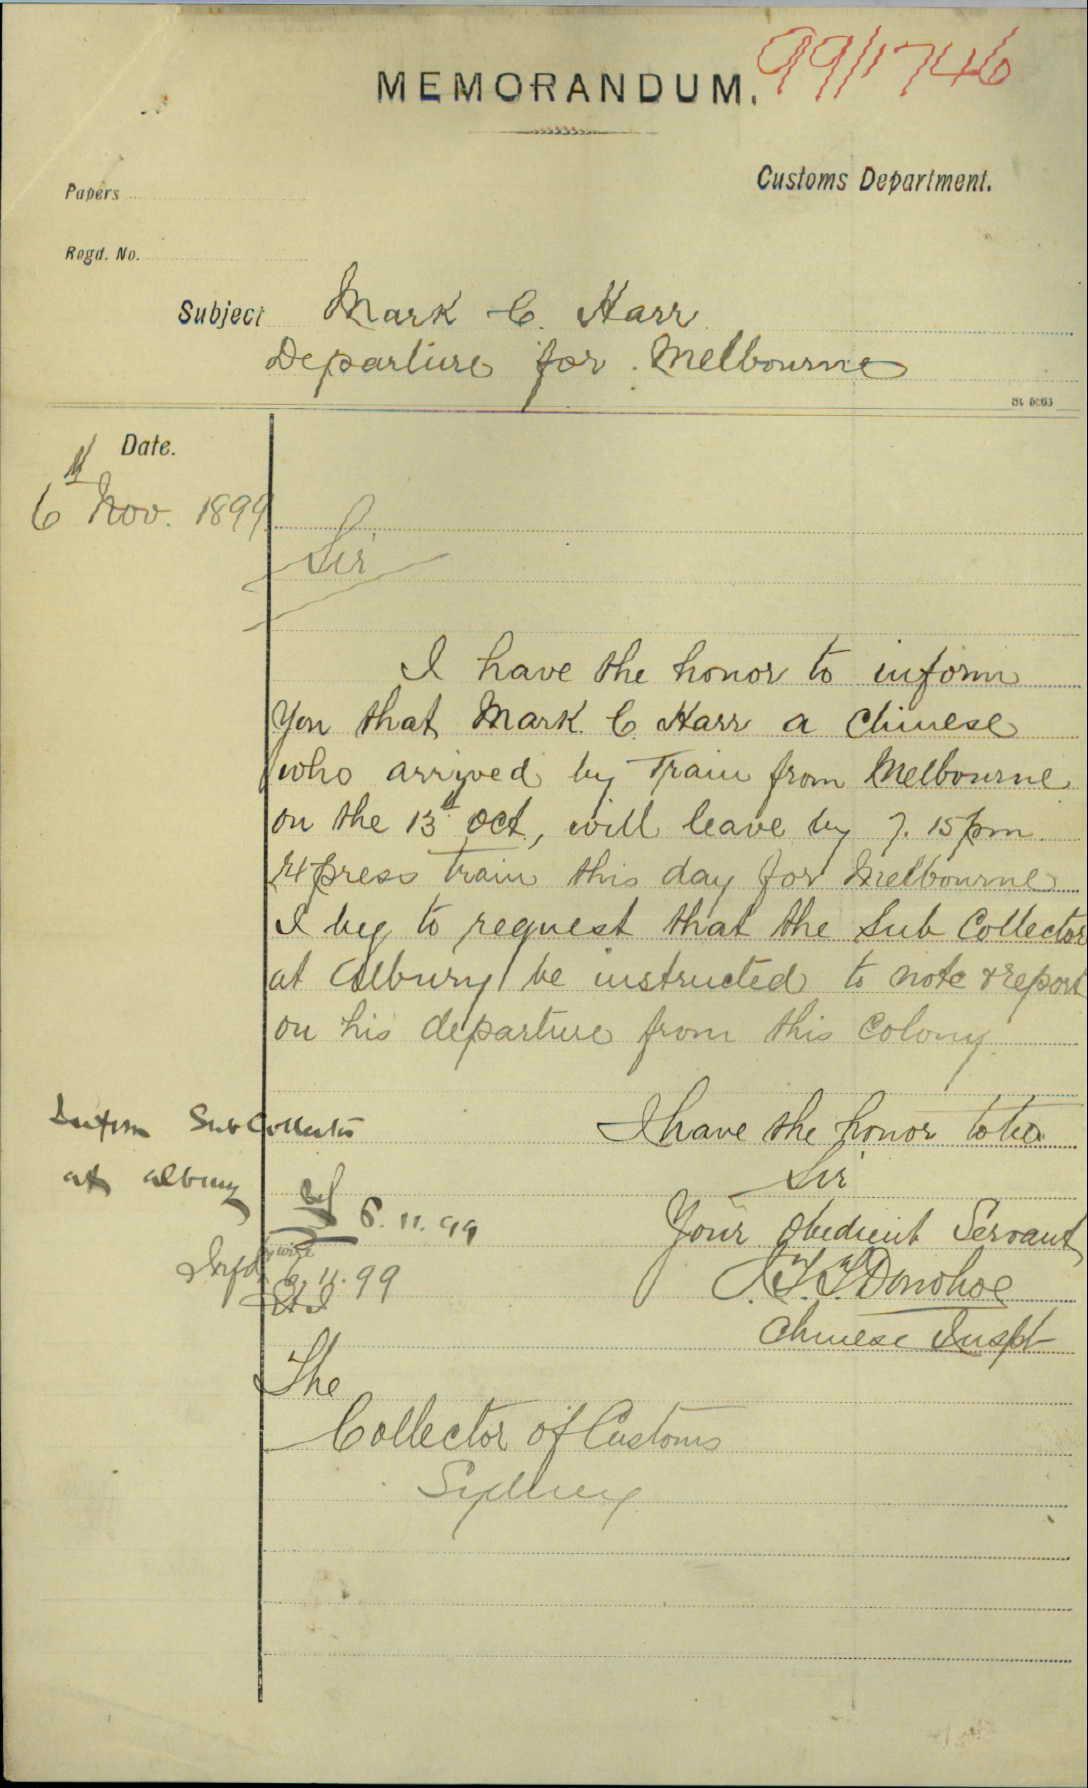 99/1746
MEMORANDUM.
Customs Department.
Papers
Regd. No.
Subject Mark C. Harr
Departure for Melbourne
Date.
6th Nov. 1899
Sir
I have the honor to inform
you that Mark C. Harr a Chinese
who arrived by Train from Melbourne
on the 13th Oct, will leave by 7.15 pm
express train this day for Melbourne
I beg to request that the Sub Collector
at Albury be instructed to note & report
on his departure from this Colony
I have the honor to be
Sir
Your Obedient Servant
Donohoe
Chinese Inspt
Inform Sub Collector
at Albury
6.11.99
Infd by wire
6.11.99
The
Collector of Customs
Sydney